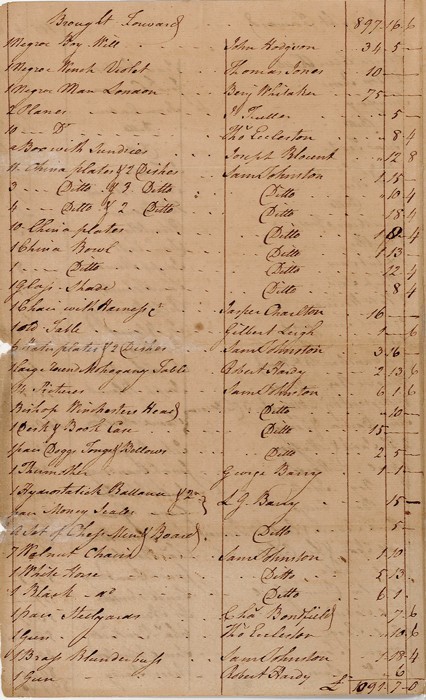 Brought Forward } 897 16 6
1 Negroe Boy Will John Hodgson 34 5 —
1 Negroe Wench Violet Thomas Jones 10 — —
1 Negroe Man London Benj Whitaker 75 — —
2 Planes 5 —
10 — Do Thos Eccleston 8 4
a Box with Sundries Joseph Blount 12 8
11 China plates & 2 Dishes Saml Johnston 1 15 —
3 Ditto & 3 Ditto Ditto 10 4
4 Ditto & 2 Ditto Ditto 15 4
10 China plates Ditto 4
1 China Bowl Ditto 1 13 —
1 — Ditto Ditto 12 4
1 Glass Shade Ditto 8 4
1 Chair with Harness &c Jasper Charlton 16 — —
1 old Table Gilbert Leigh 1 — 6
plates & 2 Dishes Saml Johnston 3 6
1 Large Round Mohogany Table Robert Hardy 2 13 6
Pictures Saml Johnston 6 1 6
Bishop Winchesters Head } Ditto 10 —
1 Desk & Book Case Ditto 15 — —
1 pair Doggs Tongs & Bellows Ditto 2 5 —
1 George Barry 1 1 —
1 Hydrostatick Ballance & 2
pair Money Scales } Barry 15 —
a Set of Chess Men & Board } Ditto 5 —
7 Walnut Chairs Saml Johnston 1 10
1 White Horse Ditto 5 13
1 Black Do Ditto 6 1
1 pair Steelyards Chas Bondfield 7 6
1 Gun Thos Eccleston 10 6
1 Brass Blunderbuss Saml Johnston 1 18 4
1 Gun Robert Hardy 6
£ 1091 7 0